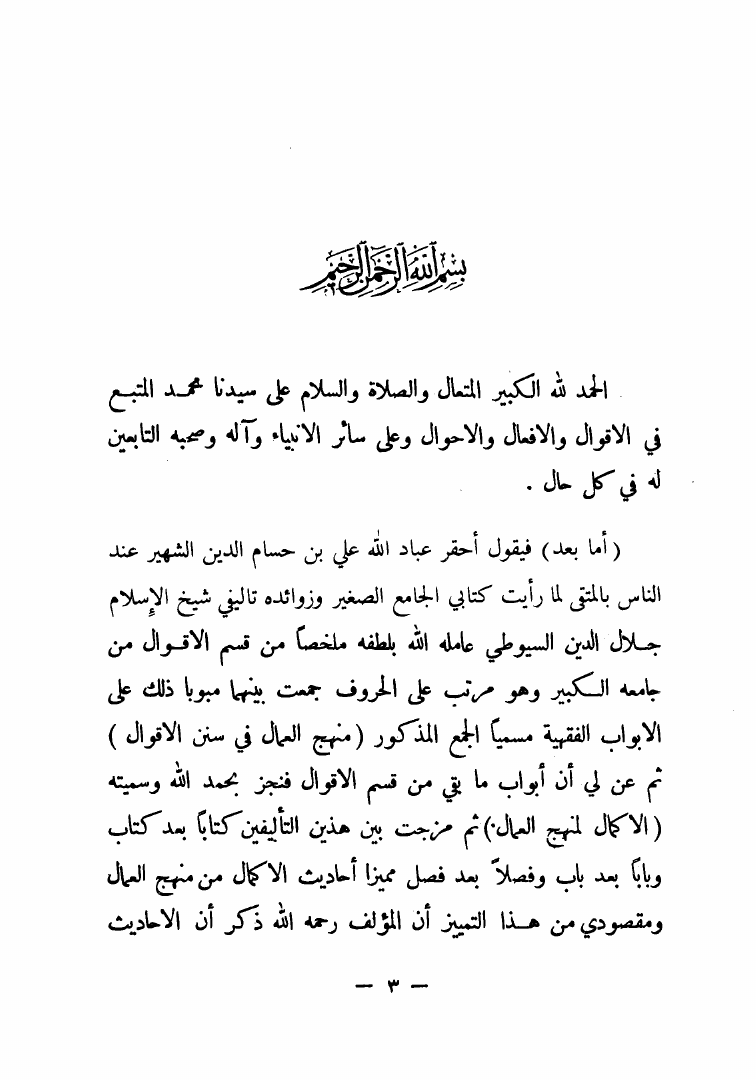 بسم الله الرحمن الرحيم
الحمد لله الكبير المتعال والصلاة والسلام على سيدنا محمد المتبع
في الاقوال والافعال والاحوال وعلى سائر الانبياء وآله وصحبه التابعين
له في كل حال .
( أما بعد ) فيقول أحقر عباد الله علي بن حسام الدين الشهير عند
الناس بالمتقى لما رأيت كتابي الجامع الصغير وزوائده تاليفي شيخ الإسلام
جلال الدين السيوطي عامله الله بلطفه ملخصاً من قسم الاقوال من
جامعه الكبير وهو مرتب على الحروف جمعت بينهما مبوبا ذلك على
الابواب الفقهية مسمياً الجمع المذكور ( منهج العمال في سنن الاقوال )
ثم عن لي أن أبواب ما بقي من قسم الاقوال فنجز بحمد الله وسميته
( الاكمال لمنهج العمال ) ثم مزجت بين هذين التأليفين كتاباً بعد كتاب
وباباً بعد باب وفصلاً بعد فصل مميزا أحاديث الاكمال من منهج العمال
ومقصودي من هذا التمييز أن المؤلف رحمه الله ذكر أن الاحاديث
— ٣ —